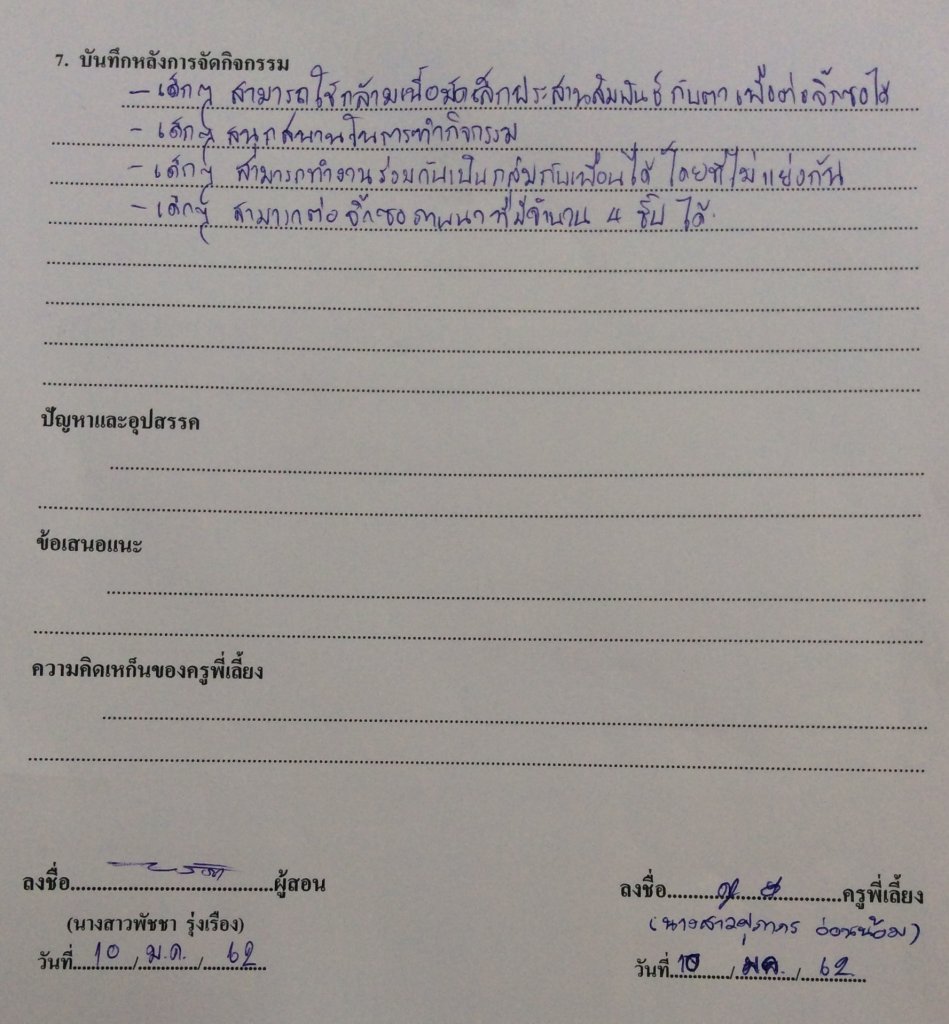 7. บันทึกหลังการจัดกิจกรรม
- เด็กๆ สามารถใช้กล้ามเนื้อมัดเล็กประสานสัมพันธ์กับตา เพื่อต่อจิ๊กซอได้
- เด็กๆ สนุกสนานในการทำกิจกรรม
- เด็กๆ สามารถทำงานร่วมกันเป็นกลุ่มกับเพื่อนได้ โดยที่ไม่แย่งกัน
- เด็กๆ สามารถต่อจิ๊กซอ ที่มีจำนวน 4 ชิ้น ได้
ปัญหาและอุปสรรค
ข้อเสนอแนะ
ความคิดเหก็นของครูพี่เลี้ยง
ลงชื่อ..................ผู้สอน
ลงชื่อ..................ครูพี่เลี้ยง
(นางสาวพัชชา รุ่งเรือง)
(นางสาว อ่อนน้อม)
วันที่ 10 / ม.ค. / 62
วันที่ 10 / ม.ค. / 62